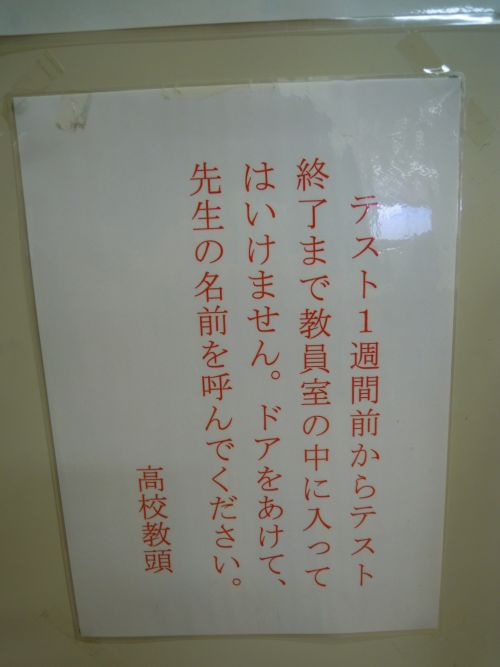 テスト1週間前からテスト
終了まで教員室の中に入って
はいけません。ドアをあけて、
先生の名前を呼んでください。
高校教頭